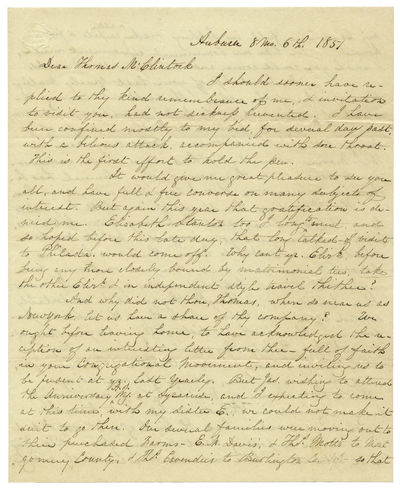 Auburn 8 Mo. 6th. 1851
Dear Thomas McClintock
I should sooner have re-
plied to thy kind remembrance of me, & invitation
to visit you, had not sickness prevented. I have
been confined mostly to my bed, for several days past
with a bilious attack, accompanied with sore throat.
This is the first effort to hold the pen.
It would give me great pleasure to see you
all, and have full & free converse on many subjects of
interest. But again this year that gratification is de-
nied me. Elizabeth Stanton too I want to meet, and
so hoped before this late day, that long talked-of visit
to Philada. would come off. Why can't yr. Elizth. before
being any more closely bound by matrimonial ties, take
the other Elizth. & in independent style travel thither?
And why did not thou, Thomas, when so near us as
New York, let us have a share of thy company? We
ought before leaving home, to have acknowledged the re-
ception of an interesting letter from thee - full of faith
in your Congregational Movement, and inviting us to
be present at yr. last Yearly. But Jas. wishing to attend
the Anniversary Mg. at Syracuse, and I expecting to come
at this time with my sister E., we could not make it
suit to go then. Our several families were moving out to
their purchased Farms - E. M. Davis, & Thos. Motts to Mont
gomery County, & Thos. to Burlington so that